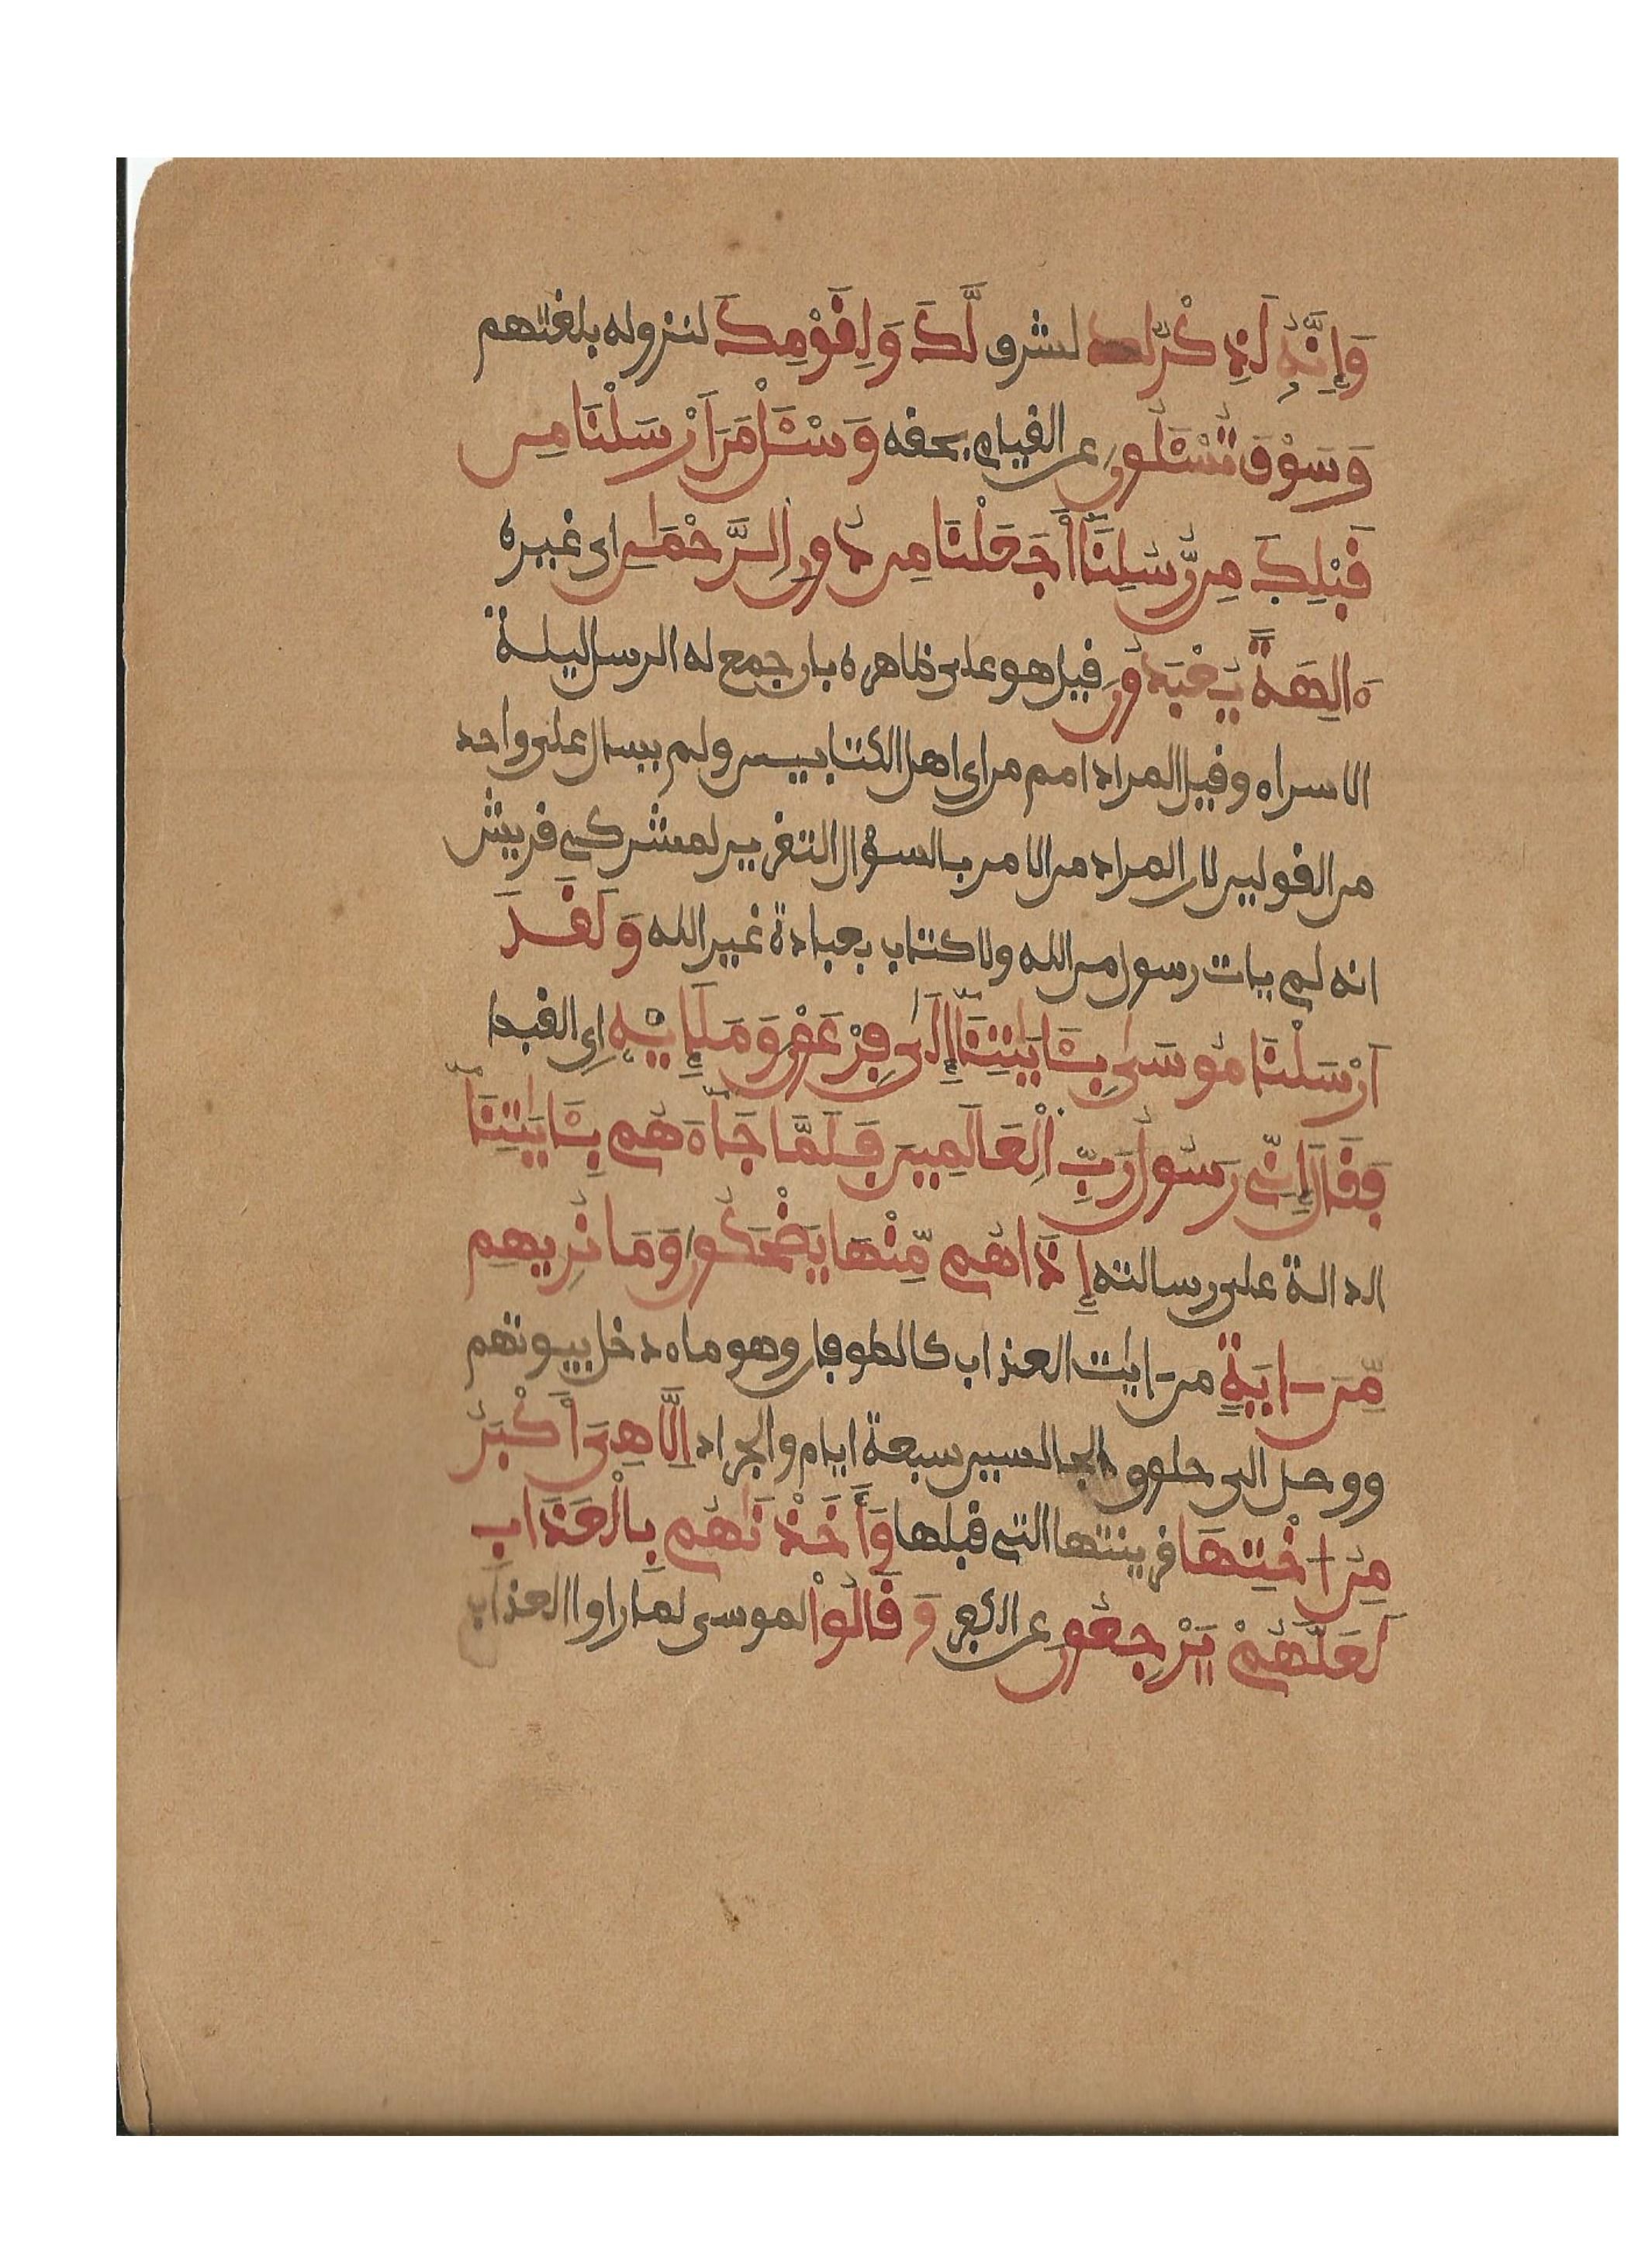 وَإِنَّهُ لَذِكْرٌ لشرف لَّكَ وَلِقَوْمِكَ لنزوله بلغتهم
وَسَوْفَ تُسْـَٔلُونَ عن القيام بحقه وَسْـَٔلْ مَنَ اَرْسَلْنَا مِن
قَبْلِكَ مِن رُّسُلِنَآ أَجَعَلْنَا مِن دُونِ اِلرَّحْمَٰنِ اى غيره
ءَالِهَةً يُعْبَدُونَ قيل هو على ظاهره بان جمع له الرسل ليلة
الاسراء وقيل المراد امم من اى اهل الكتابيين ولم يسال على واحد
من القولين لان المراد من الامر بالسؤال التقرير لمشركى قريش
انه لم يات رسول من الله ولا كتاب بعبادة غير الله وَلَقَدَ
اَرْسَلْنَا مُوسَىٰ بِـَٔايَٰتِنَآ إِلَىٰ فِرْعَوْنَ وَمَلَإِيْهِ اى القبط
فَقَالَ إِنِّى رَسُولُ رَبِّ اِلْعَالَمِينَ فَلَمَّا جَآءَهُم بِـَٔايَٰتِنَآ
الدالة على رسالته إِذَا هُم مِّنْهَا يَضْحَكُونَ وَمَا نُرِيهِم
مِّنَ ـايَةٍ من ـايٰت العذاب كالطوفان وهو ماء دخل بيوتهم
ووصل الى حلوق الجالسين سبعة ايام والجراد اِلَّا هِىَ أَكْبَرُ
مِنُ اخْتِهَا قرينتها التى قبلها وَأَخَذْنَٰهُم بِالْعَذَابِ
لَعَلَّهُمْ يَرْجِعُونَ عن الكفر وَقَالُواْ لموسى لما راوا العذاب